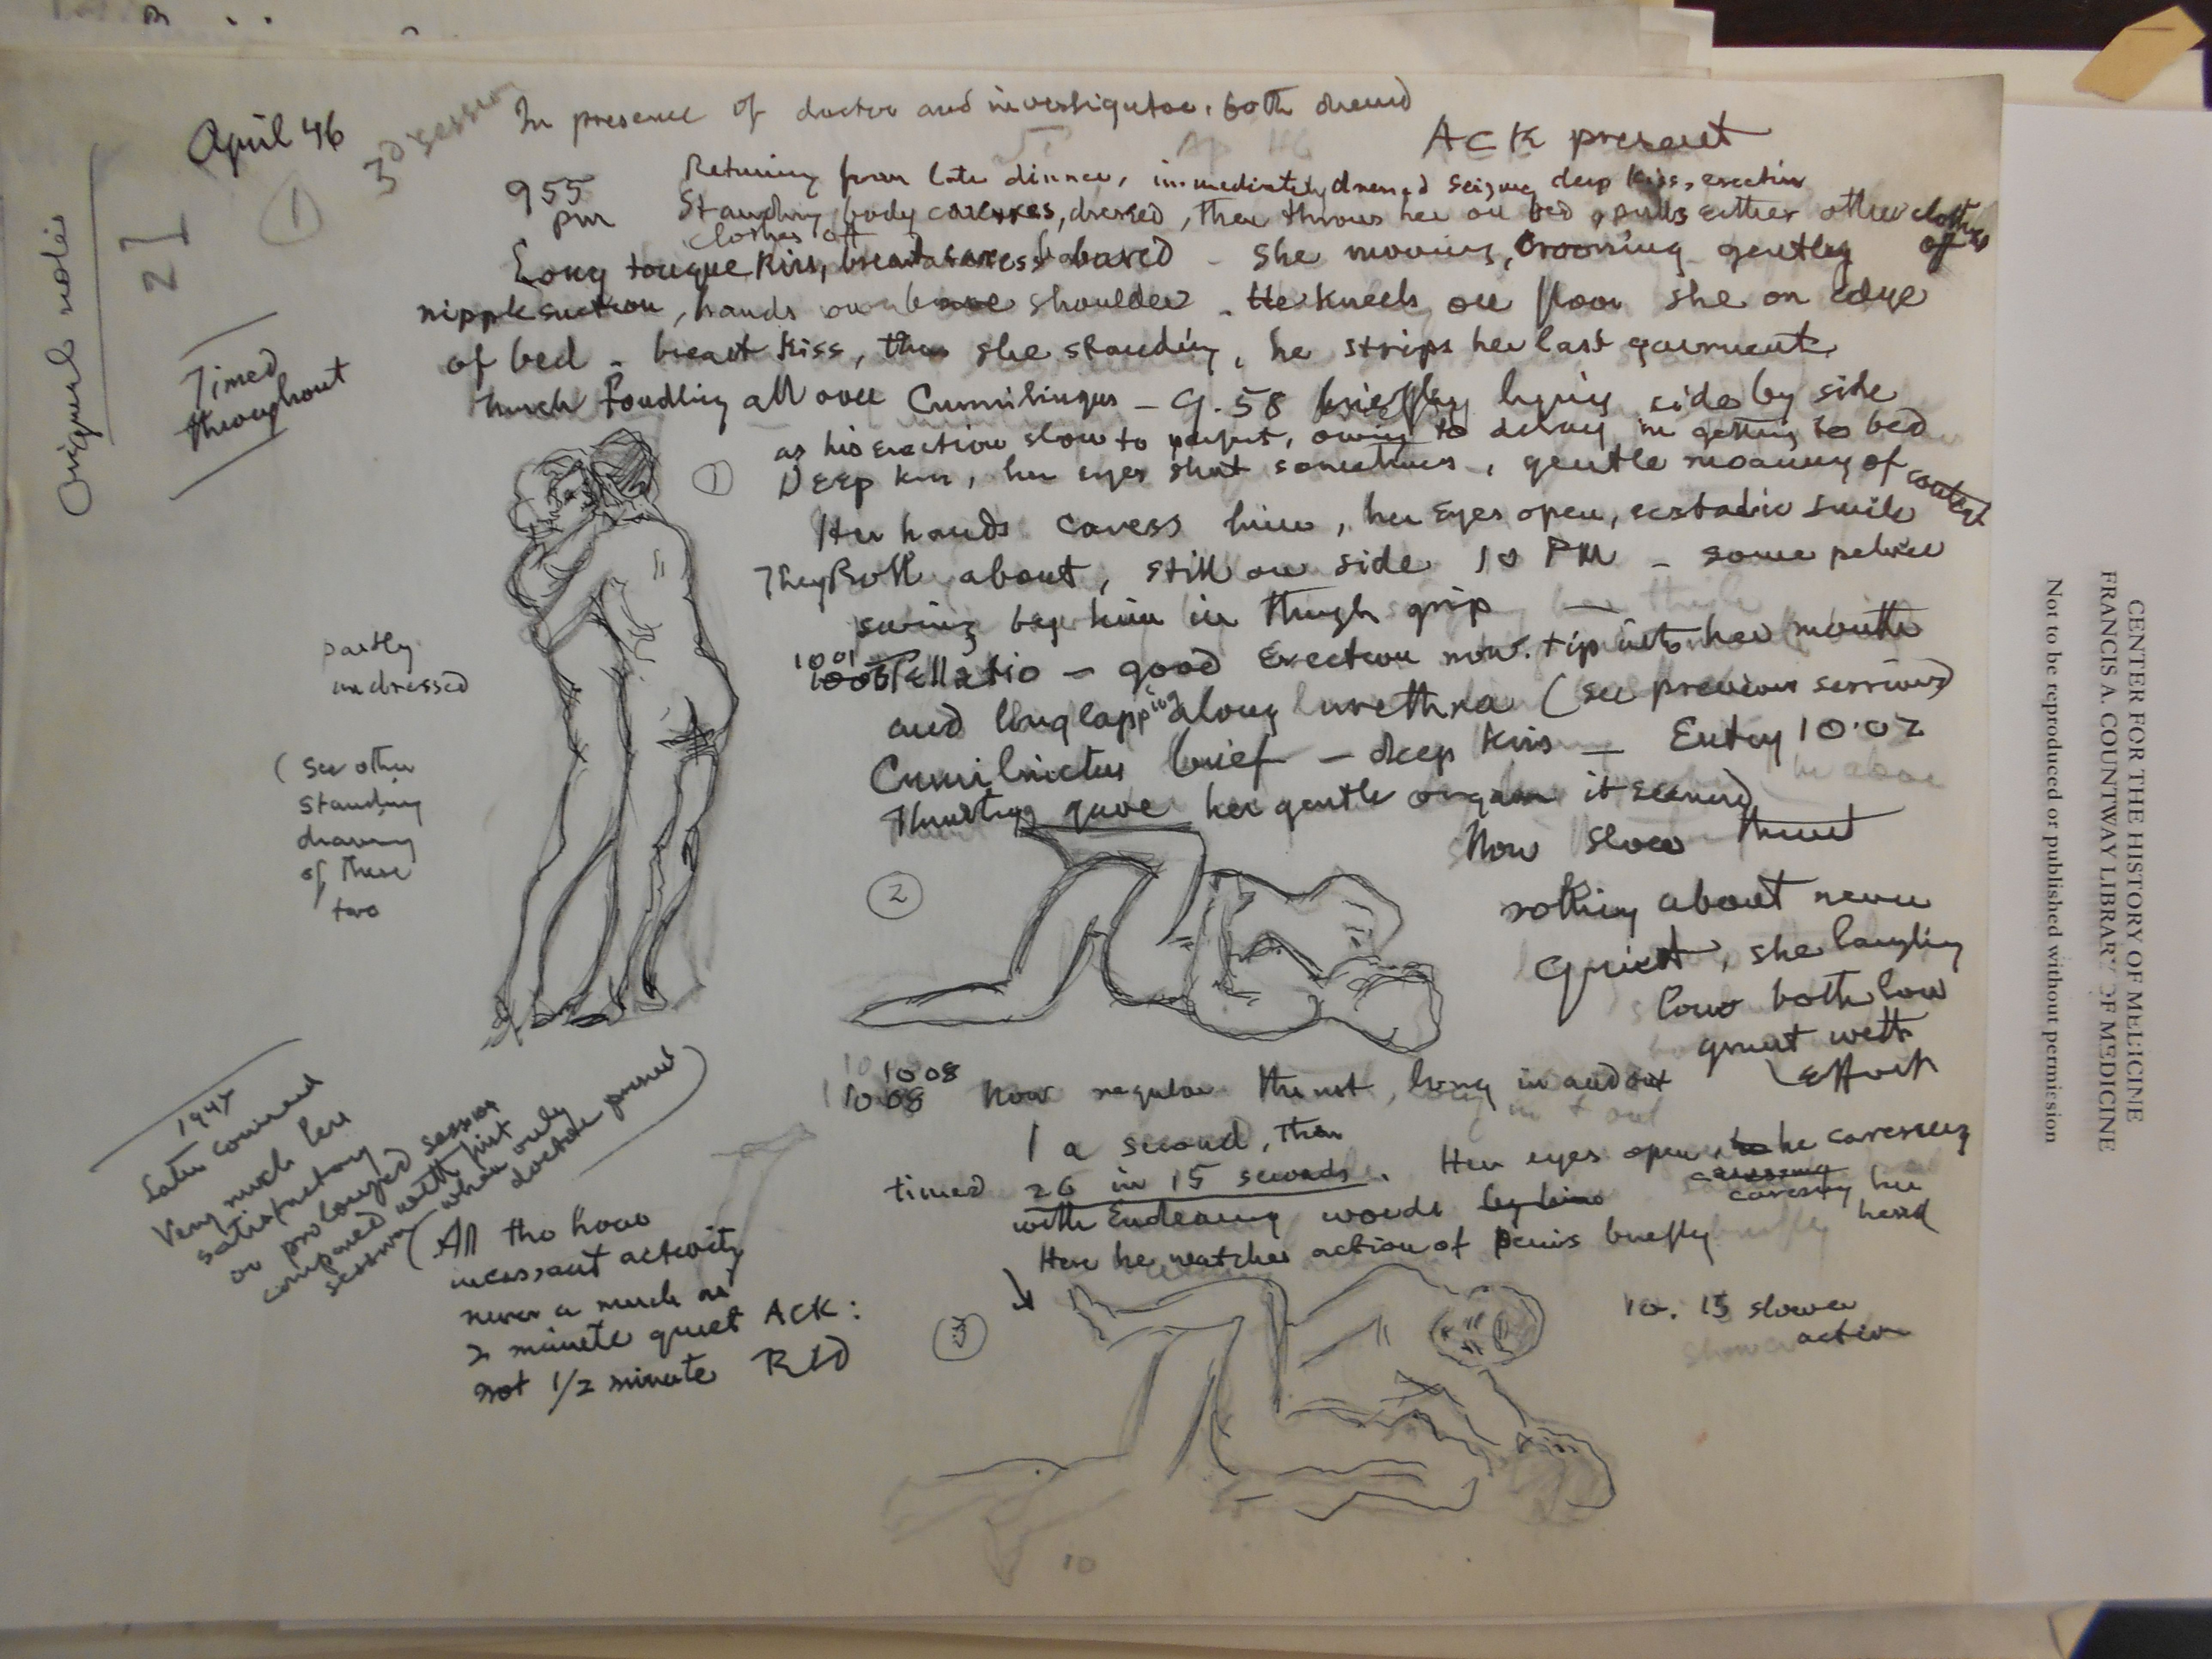 April 46
3D session
Original notes
21
1
Timed
throughout
In presence of doctor and investigator, both dressed
ACK present
955
pm
Returning from late dinner, immediately dressed seizing deep kiss, erection
Standing, body caresses, dressed, then throws her on bed, pulls either other clothes
off
clothes off
Long tongue kiss, breast caress bared - She moving, crooning gently
nipple suction, hands on shoulder - He kneels on floor she on edge
of bed - breast kiss, then she standing, he strips her last garment,
much fondling all over Cunnilingus - 9.58 briefly lying side by side
as his erection slow to perfect, owing to delay in getting to bed
1
Deep kiss, her eyes shut sometimes, gentle moaning of content
Her hands caress him, her eyes open, ecstatic smile
They Roll about, still on side 10 PM - some pelvic
swing by him in thigh grip
1001 Fellatio - good Erection now. tip into her mouth
and lapping along urethra (see previous sessions)
Cunnilinctus brief - deep kiss - Entry 10.02
Thrusting gave her gentle orgasm it seemed
Now slow thrust
2
rolling about never
Quiet, she laughing
low both low
grunt with
Effort
partly
undressed
(See other
standing
drawing
of these
two
10 08
10 08 Now regular thrust, long in and out
1 a second, then
timed 26 in 15 seconds. Her eyes open, he caressing
caressing
caressing her
head
with Endearing words by him
Here he watches action of penis briefly
3
10. 15 slower
action
1947
Later comment
Very much less
satisfactory
or prolonged session
compared with first
session (when only
doctor present)
All the hour
incessant activity
never a much as
2 minute quiet ACK:
not 1/2 minute RLD
10
CENTER FOR THE HISTORY OF MEDICINE
FRANCIS A. COUNTWAY LIBRARY OF MEDICINE
Not to be reproduced or published without permission